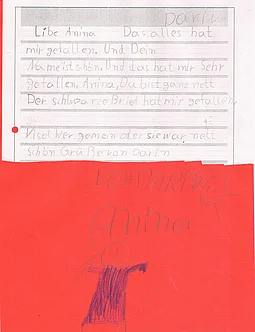 Darin
Libe Anina Das alles hat
mir gefallen. Und Dein
Name ist schön. Und das hat mir Sehr
gefallen, Anina, Du bist ganz nett
Der schwarze Brief hat mir gefallen
war gemein oder sie war nett
schön Grüße von Darin
Anina